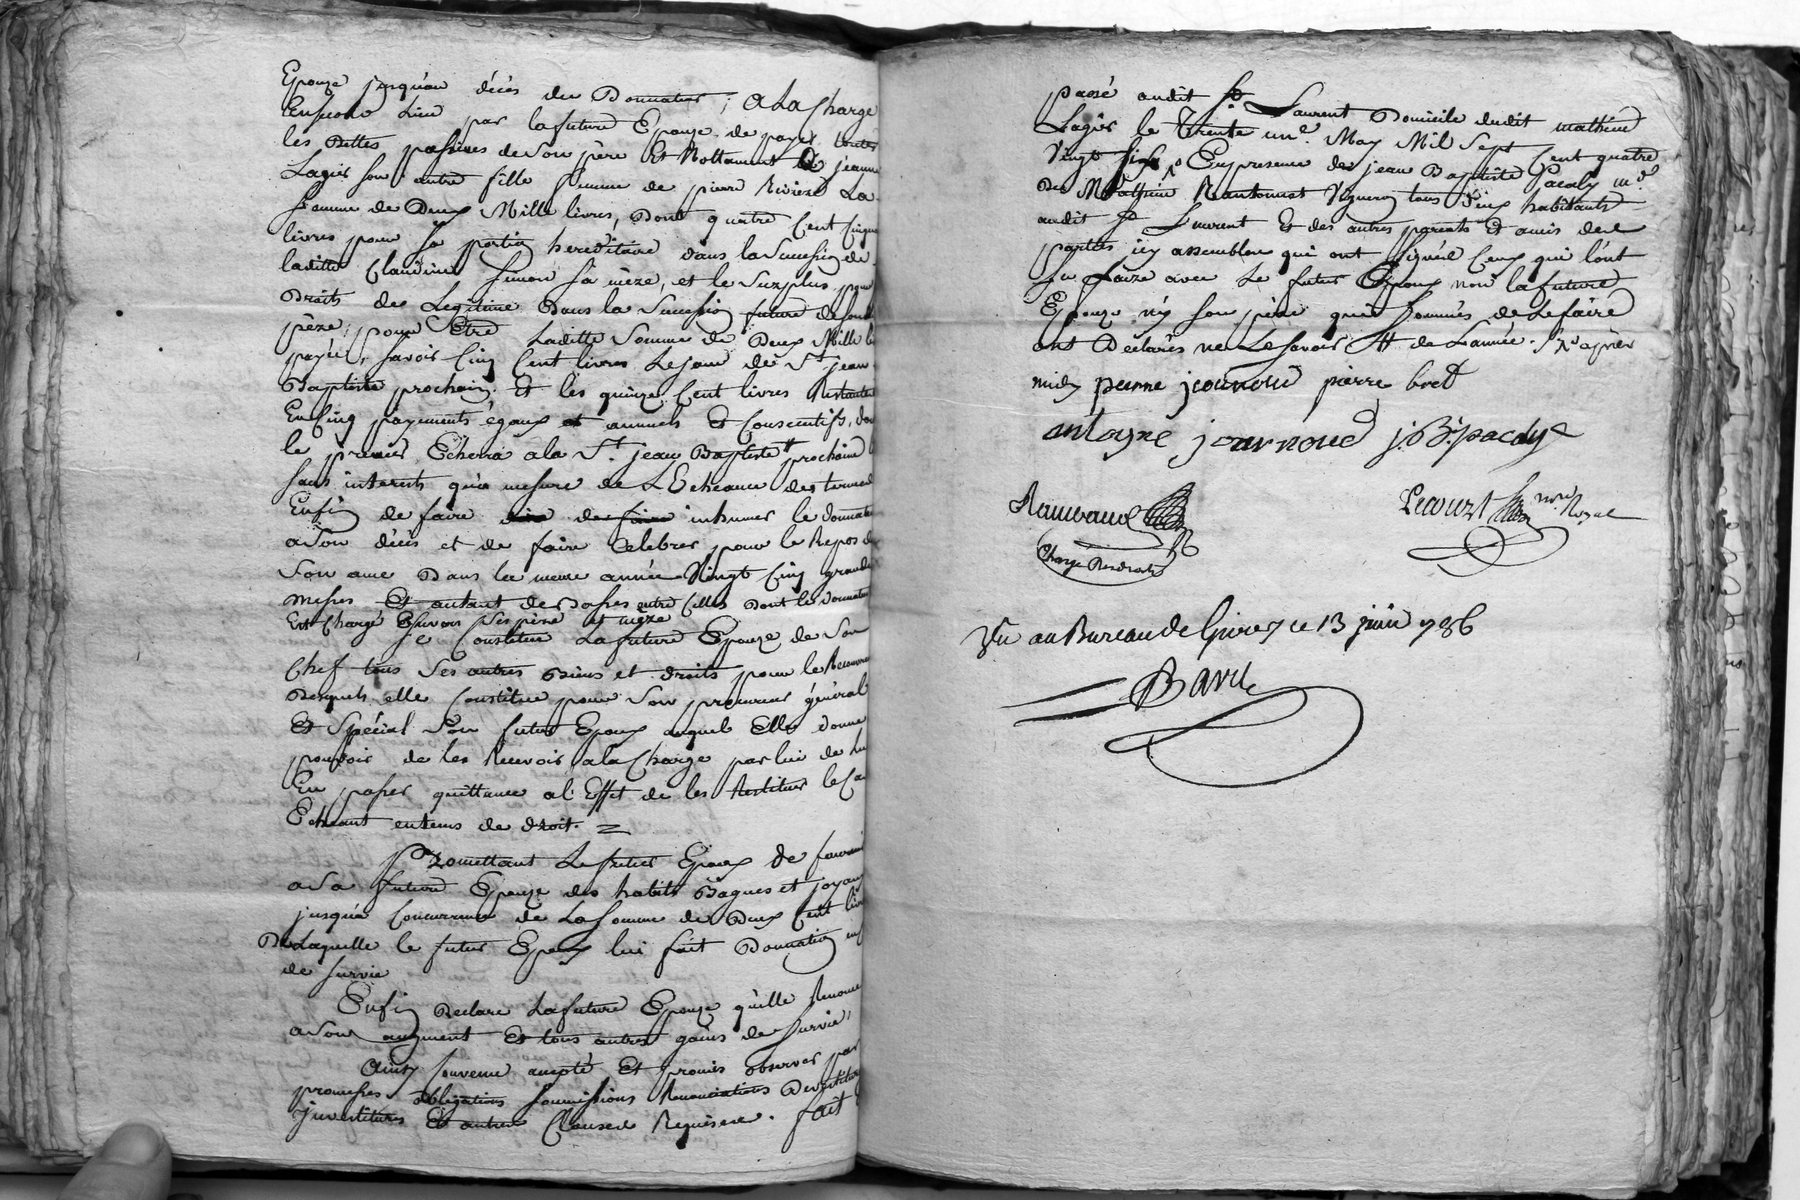 Epouze jusqu'au décès du Donnateur; A La Charge
En second Lieu par la future Epouze de payer toutes
les Dettes passives de son père Et Nottament a jeanne
Lagier son autre fille femme de pierre Riviere La
Somme de Deux Mille livres, Dont quatre Cent Cinqu
livres pour sa portion hereditaire dans la Succession de
laditte Claudine Simon sa mère, et le Surplus pour
Droits de Legitime Dans la Succession future de son
père, pour Etre Laditte Somme de Deux Mille l
payée, savoir Cinq Cent livres Le jour de St jean
Baptiste prochain Et les quinze Cent livres Restantes
En Cinq payements égaux et annuels Et Consecutifs, do
le premier Echerra a la St jean Baptiste prochaine
sans interets qu'a mesure de L'Echeance des termes
Enfin de faire de faire inhumer le Donnateur
a Son décès et de faire Celebrer pour le Repos de
Son ame Dans la meme année Vingt Cinq grandes
messes Et autant de Basses outre Celles Dont le Donnateur
Est Chargé Envers Ses père et mère
Se Constitue La future Epouze de Son
Chef tous Ses autres Biens et droits pour le Recouvrem
Desquels elle Constitue pour Son procureur général
Et Spécial Son futur Epoux auquel Elle donne
pouvoir de les Recevoir a la Charge par lui de Lui
En passer quittance a l'Effet de les Restituer le Ca
Echéant en tems de droit.
Promettant Le futur Epoux de fournir
a Sa future Epouze des habits Bagues et joyaux
jusqu'a Concurrence de La Somme de Deux Cent livres
De Laquelle le futur Epoux lui fait Donnation en
de Survie
Enfin Declare La future Epouze qu'elle Renonce
a Son augment Et tous autres gains de Survie,
Ainsy Convenu accepté Et promis observer par
promesses obligations Soumissions Renonciations Devestitures
Investitures Et autres Clauses Requises. fait
passé audit St Laurent Domicile dudit mathieu
Lagier le Trente une May Mil Sept Cent quatre
Vingt Six En presence de jean Baptiste Pacaly md
De Mathieu Vigneron tous Deux habitants
audit St Laurent Et des autres parents Et amis des
parties icy assemblees qui ont Signé Ceux qui l'ont
Su faire avec Le futur Epoux non la future
Epouze ny son père qui Sommés de Le faire
ont Declarés ne Le Savoir # de L'année. après
midy pierre journoud pierre bret
antoyne journoud j B. pacalye
Vu au Bureau de Givors ce 13 juin 1786